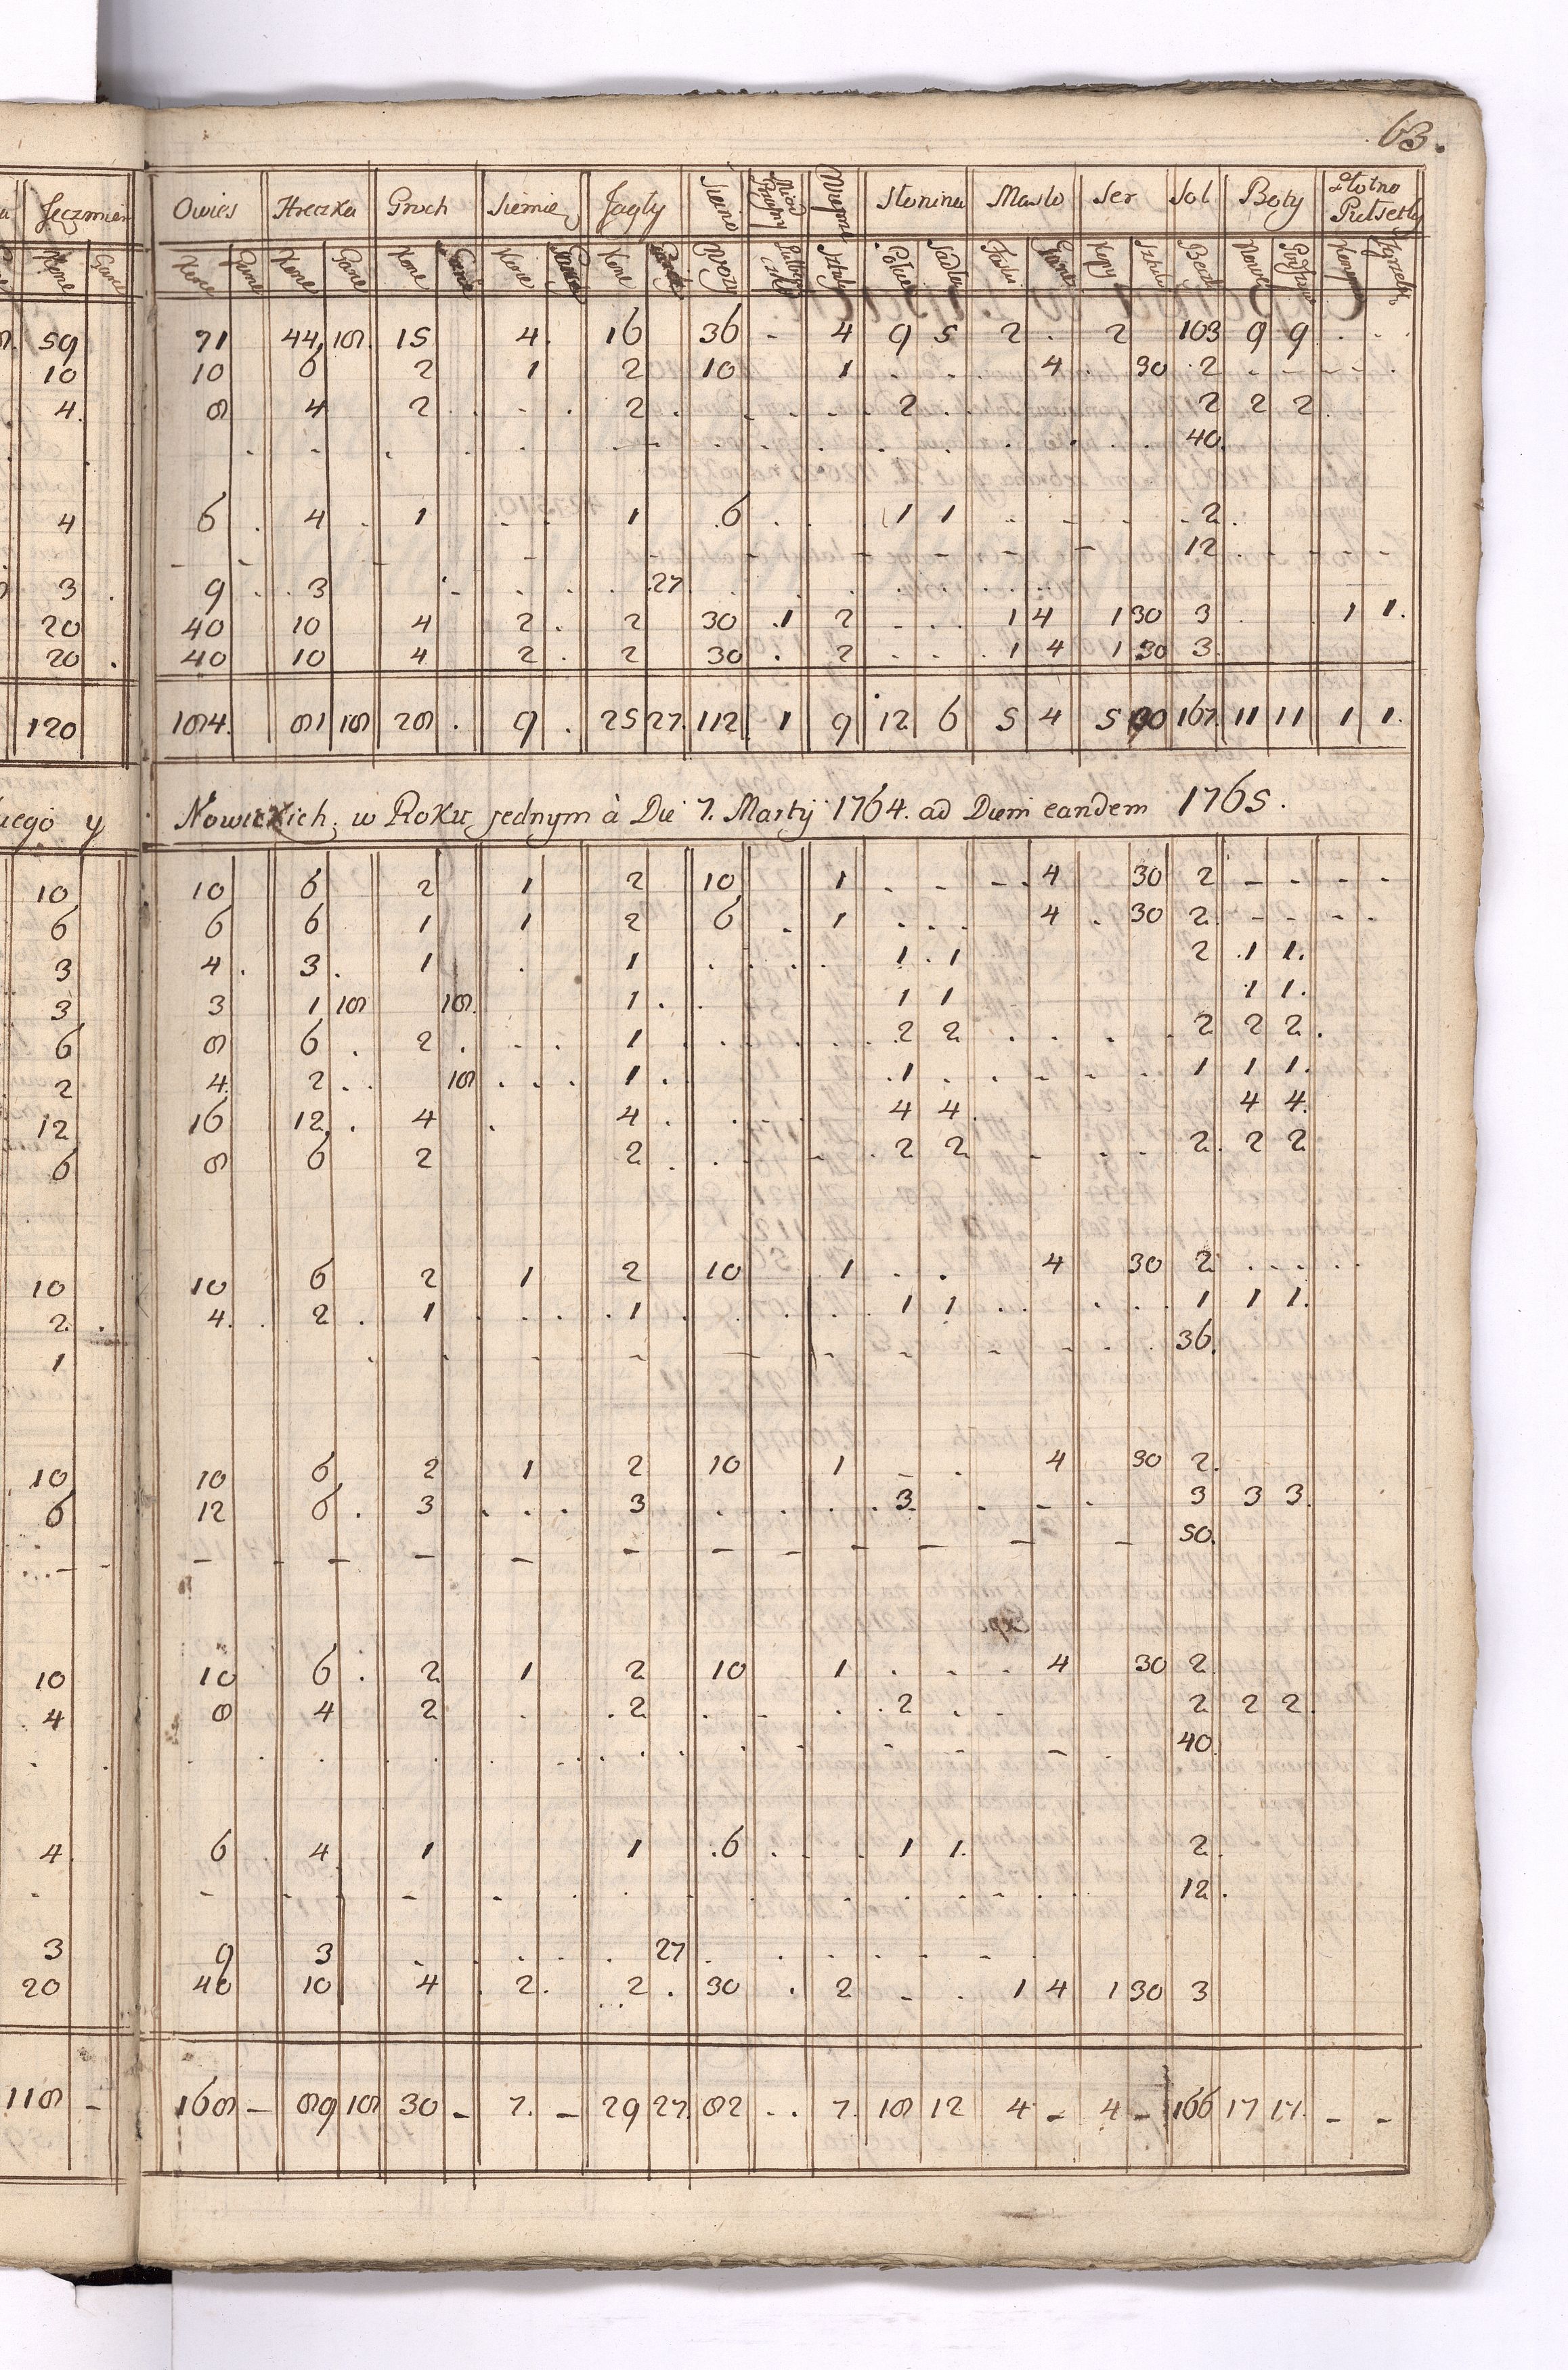 63.
Jęczmień Owies Hreczka Groch Siemie Jagły Siano Słonina Masło Ser Sol Boty Płotno
Pułsetky
Kone Garne Kone Garne Kone Garne Kone Garne Kone Garne Kone Garne Wozy Sztuk Połcie Sadła Faski Garne Kopy Sztuk
59 71 44 18. 15 4. 16 36 - 4 9 5 2 . 2 103 9 9 . .
10 10 6 2 1 2 10 1 . . . 4 . 30 2 - - - - .
4. 8 4 2 . . - . 2 . . - . . 2 . . 2 2 2 .
40.
4 6 . 4 . 1 . . 1 .6 . . 1 1 . - - . 2.
- - - - - - - - 12 . - - - -
3 . 9 . . 3 . - . . . .27 . . .
20 40 10 4 2 . 2 30 .1 2 . . . 1 4 1 30 3 . . 1 1.
20 . 40 10 4 2 . 2 30 . 2 . . . 1 4 1 30 3.
120 184. 81 18 28 . 9 . 25 27. 112 1 9 12 6 5 4 5 30 167. 11 11 1 1.
iego y Nowickich. w Roku jednym à Die 7. Martij 1764. ad Diem eandem 1765.
10 10 6 2 1 2 10 1 . - - . 4 30 2 - - - -
6 6 6 1 1 2 6 . 1 . . . 4 . 30 2 . - - - -
3 4 . 3 . 1 . 1 . . . . 1 . 1 2 .1 1.
3 3 1 18 18. 1 . . 1 1 1 1.
6 8 6 . 2 . . . 1 . . . . . 2 2 . . . . 2 2 2 .
2 4. 2 . . 18 . . . 1 . .1 . . - - . . 1 1 1.
12 16 12. . 4 . 4 . . - . 4 4. 4 4.
6 8 6 2 2 . . - . 2 2 - . . 2. 2 2
10 10 6 2 1 2 10 1 . . 4 30 2 . . . . .
2. . 4. . 2 . 1 . . . .1 . . . . 1 1 . . . . 1 1 1.
1 . . - - - . - - - . . 36.
10 10 6 2 1 2 10 1 - . 4 30 2.
6 12 6 . 3 . . . 3 . . . . 3 . - . 3 3 3
. . . - - - - - - - - - - - - - - 50.
10 10 6 . 2 1 2 10 1 . - - 4 30 2
4 8 4 2 . . .2 . - . . 2 . - 2 2 2 .
. . . . . . . . . . . - - - . 40.
4. 6 4 1 1 .6 . . 1 1. 2.
- - - - - . . . . . - . . 12 .
3 9 3 . . . . 27 . . - . - -
20 40 10 4 2. 2 . 30 . 2 - . 1 4 1 30 3
118 - 168 - 89 18 30 - 7. - 29 27. 82 . . 7. 18 12 4 - 4 - 166 17 17. - -